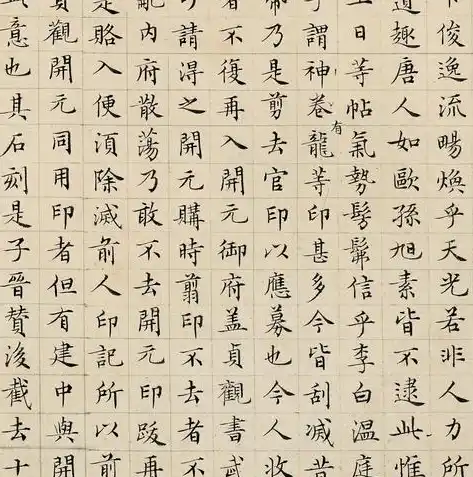 俊逸流暢煥乎天光若非人力所
道趣唐人如歐孫旭素皆不逮此惟
日等帖有氣勢髣髴信乎李白温庭
謂神卷龍等印甚多今皆刮滅昔
帝乃是剪去官印以應募也今人收
者不復再入開元御府蓋貞觀書武
請淂之開元購時翦印不去者不
亂内府散蕩乃敢不去開元印跋再
是賂入便湏除滅前人印記所以前
貞觀開元同用印者但有建中與開
意也其石刻是子晉賛後截去十